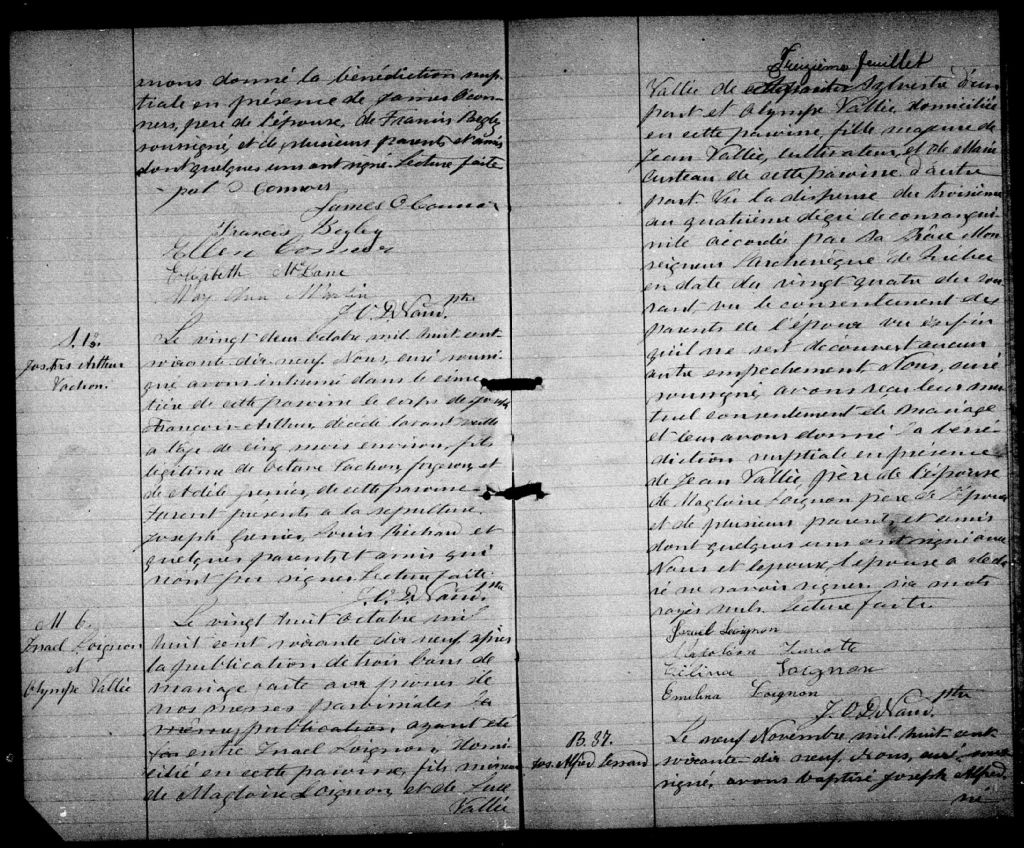 mons donné la bénédiction nup
tiale en présence de James O'Con
nors, père de l'épouse, de Francis Begly
soussigné et de plusieurs parents et amis
dont quelques uns ont signé. Lecture faite
Connors
James O'Connor
Francis Begley
Ellen Connor
Elizabeth McCane
Mary Ann Martin
J. O. D. Naud. Ptre
S. 13.
Joseph Arthur
Vachon.
Le vingt deux Octobre mil huit cent
soixante dix neuf Nous, curé soussi
gné avons inhumé dans le cime
tière de cette paroisse le corps de Joseph
François Arthur, décédé l'avant veille
à l'âge de cinq mois environ, fils
légitime de Octave Vachon, forgeron, et
de Adèle Grenier, de cette paroisse
Furent présents à la sépulture
Joseph Grenier, Louis Richard et
quelques parents et amis qui
n'ont pu signer. Lecture faite.
J. O. D. Naud. Ptre
M 6.
Israel Loignon
et
Olympe Vallée
Le vingt huit Octobre mil
huit cent soixante dix neuf après
la publication de trois bans de
mariage faite aux prônes de
nos messes paroissiales la
même publication ayant été
entre Israel Loignon, domi
cilié en cette paroisse, fils mineur
de Magloire Loignon, et de Luce
Vallée
Treizième feuillet
Vallée de Sylvestre d'une
part et Olympe Vallée domiciliée
en cette paroisse, fille majeure de
Jean Vallée, cultivateur, et de Marie
Cureau de cette paroisse d'autre
part Vu la dispense du troisième
au quatrième degré de consangui
nité accordée par Sa Grâce Mon
seigneur l'archevêque de Québec
en date du vingt quatre du cou
rant vu le consentement des
parents de l'époux vu enfin
qu'il ne s'est découvert aucun
autre empêchement Nous, curé
soussigné, avons reçu leur mu
tuel consentement de mariage
et leur avons donné la béné
diction nuptiale en présence
de Jean Vallée, père de l'épouse
de Magloire Loignon père de l'époux
et de plusieurs parents et amis
dont quelques uns ont signé avec
Nous et l'époux, l'épouse a décla
ré ne savoir signer. six mots
rayés nuls. Lecture faite.
Israel Loignon
Turcotte
Zélina Loignon
Emelina Loignon
J. O. D. Naud. Ptre
B. 37.
Jos. Alfred Lessard
Le neuf Novembre mil huit cent
soixante dix neuf, Nous, curé sous
signé, avons baptisé Joseph Alfred,
né